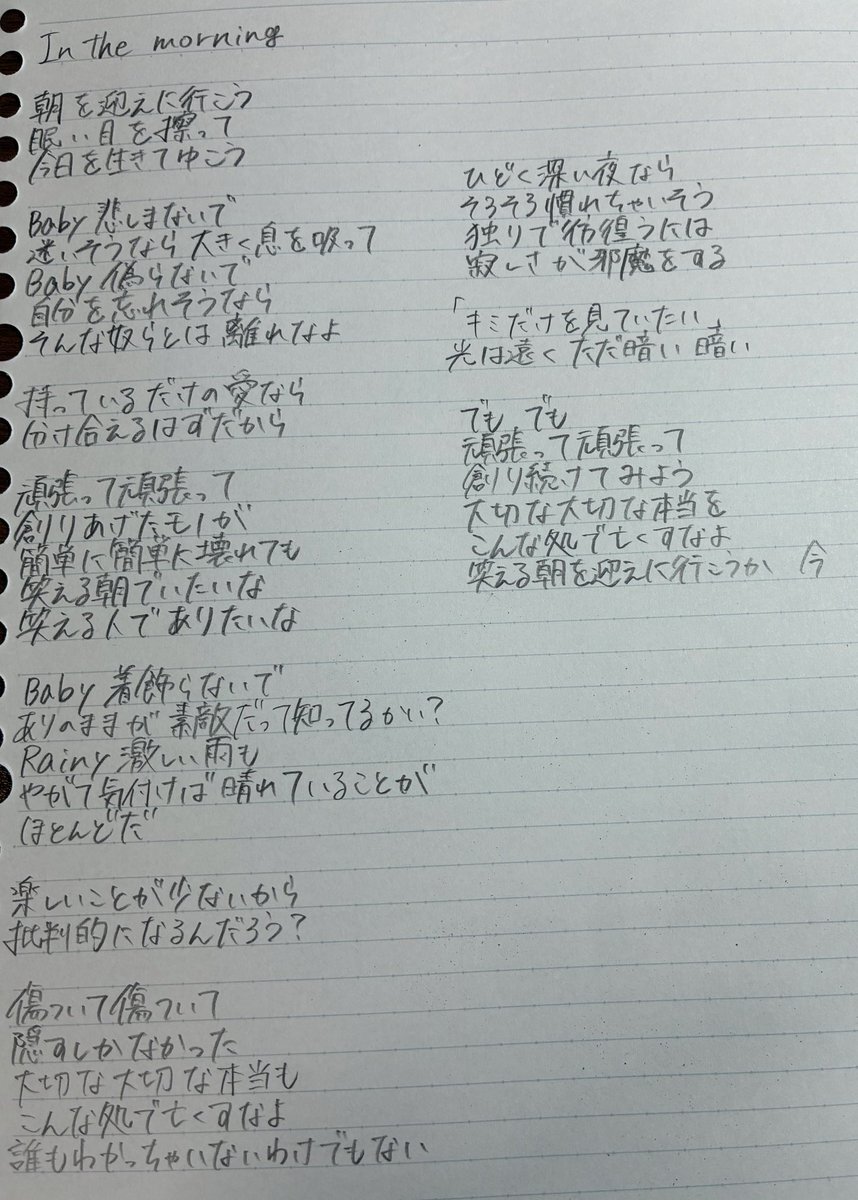 In the morning
朝を迎えに行こう
眠い目を擦って
今日を生きてゆこう
Baby 悲しまないで
迷いそうなら 大きく息を吸って
Baby 偽らないで
自分を忘れそうなら
そんな奴らとは離れなよ
持っているだけの愛なら
分け合えるはずだから
頑張って頑張って
創りあげたモノが
簡単に簡単に壊れても
笑える朝でいたいな
笑える人でありたいな
Baby 着飾らないで
ありのままが素敵だって知ってるかい?
Rainy 激しい雨も
やがて気付けば晴れていることが
ほとんどだ
楽しいことが少ないから
批判的になるんだろう?
傷ついて傷ついて
隠すしかなかった
大切な大切な本当も
こんな処で亡くすなよ
誰もわかっちゃいないわけでもない
ひどく深い夜なら
そろそろ慣れちゃいそう
独りで彷徨うには
寂しさが邪魔をする
「キミだけを見ていたい」
光は遠く ただ暗い 暗い
でも でも
頑張って頑張って
創り続けてみよう
大切な大切な本当を
こんな処で亡くすなよ
笑える朝を迎えに行こうか 今